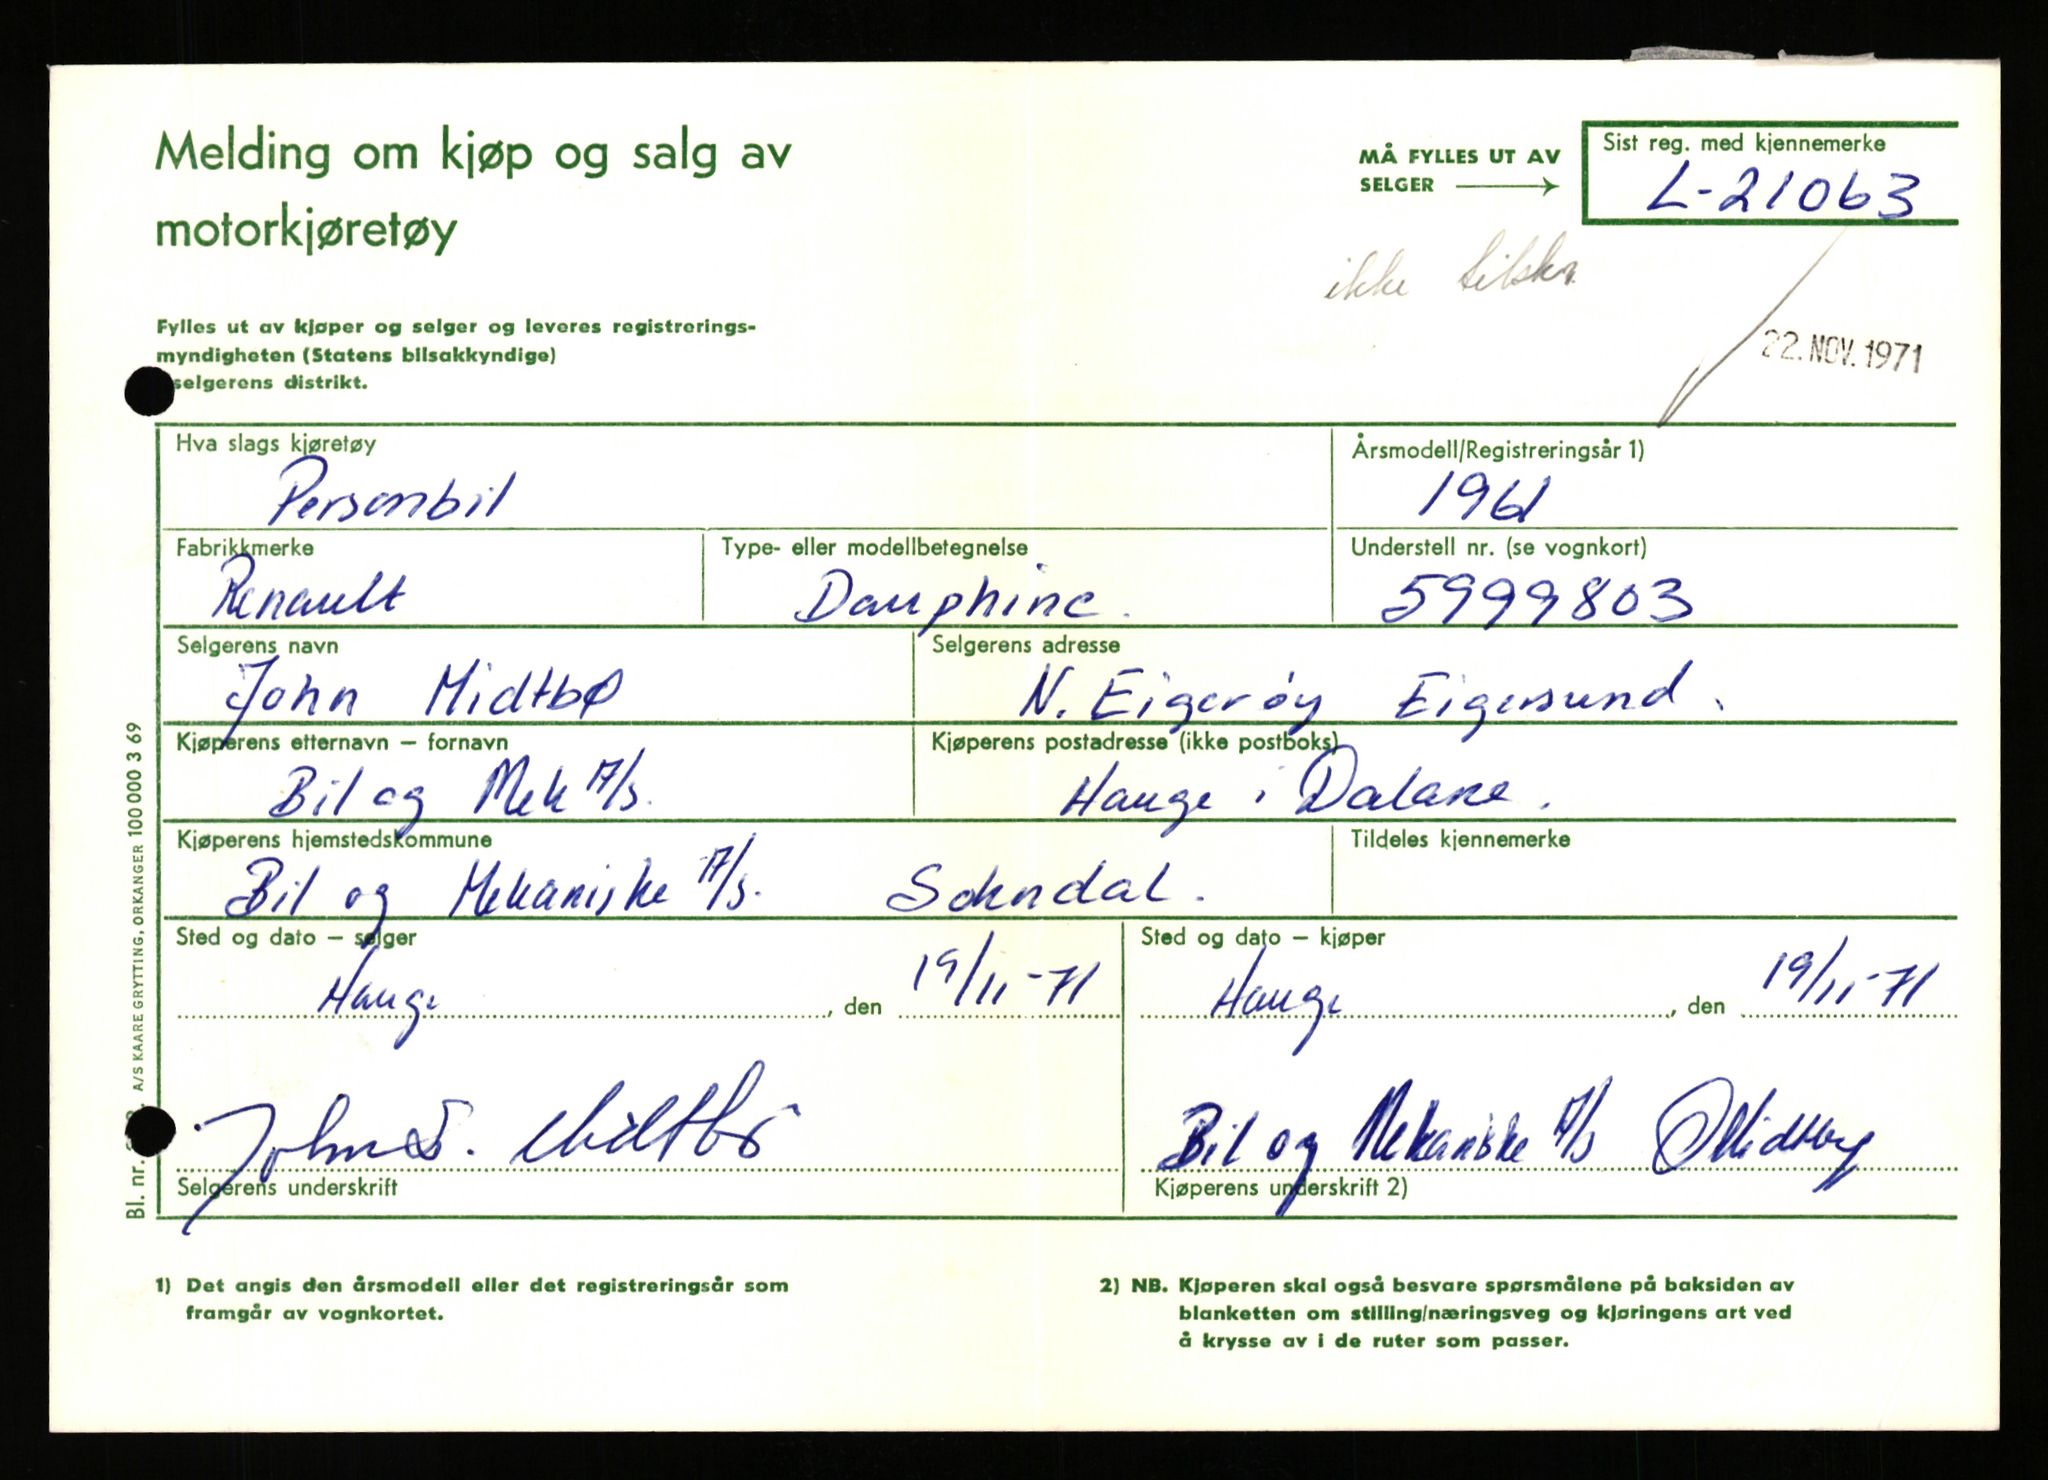 Melding om kjøp og salg av
motorkjøretøy
MÅ FYLLES UT AV
SELGER
Sist reg. med kjennemerke
L-21063
ikke tilskr.
22. NOV. 1971
Fylles ut av kjøper og selger og leveres registrerings-
myndigheten (Statens bilsakkyndige)
selgerens distrikt.
Hva slags kjøretøy
Personbil
Årsmodell/Registreringsår 1)
1961
Fabrikkmerke
Renault
Type- eller modellbetegnelse
Dauphine.
Understell nr. (se vognkort)
5999803
Selgerens navn
John Midtbø
Selgerens adresse
N. Eigerøy Eigersund.
Kjøperens etternavn – fornavn
Bil og Mek A/S.
Kjøperens postadresse (ikke postboks)
Hauge i Dalane.
Kjøperens hjemstedskommune
Bil og Mekaniske A/S. Sokndal.
Tildeles kjennemerke
Sted og dato – selger
Hauge, den 19/11-71
Sted og dato – kjøper
Hauge, den 19/11-71
John Midtbø
Selgerens underskrift
Bil og Mekaniske A/S
Kjøperens underskrift 2)
1) Det angis den årsmodell eller det registreringsår som
framgår av vognkortet.
2) NB. Kjøperen skal også besvare spørsmålene på baksiden av
blanketten om stilling/næringsveg og kjøringens art ved
å krysse av i de ruter som passer.
Bl. nr. A/S KAARE GRYTTING, ORKANGER 100 000 3 69